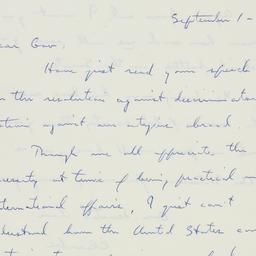 September 1 -
ear Gov.
Have just read your speech
n the resolution against discriminatory
ctions against our citizens abroad.
Though we all appreciate the
ecessity at times of being practical in
nternational affairs, I just can't
derstand how the United States can